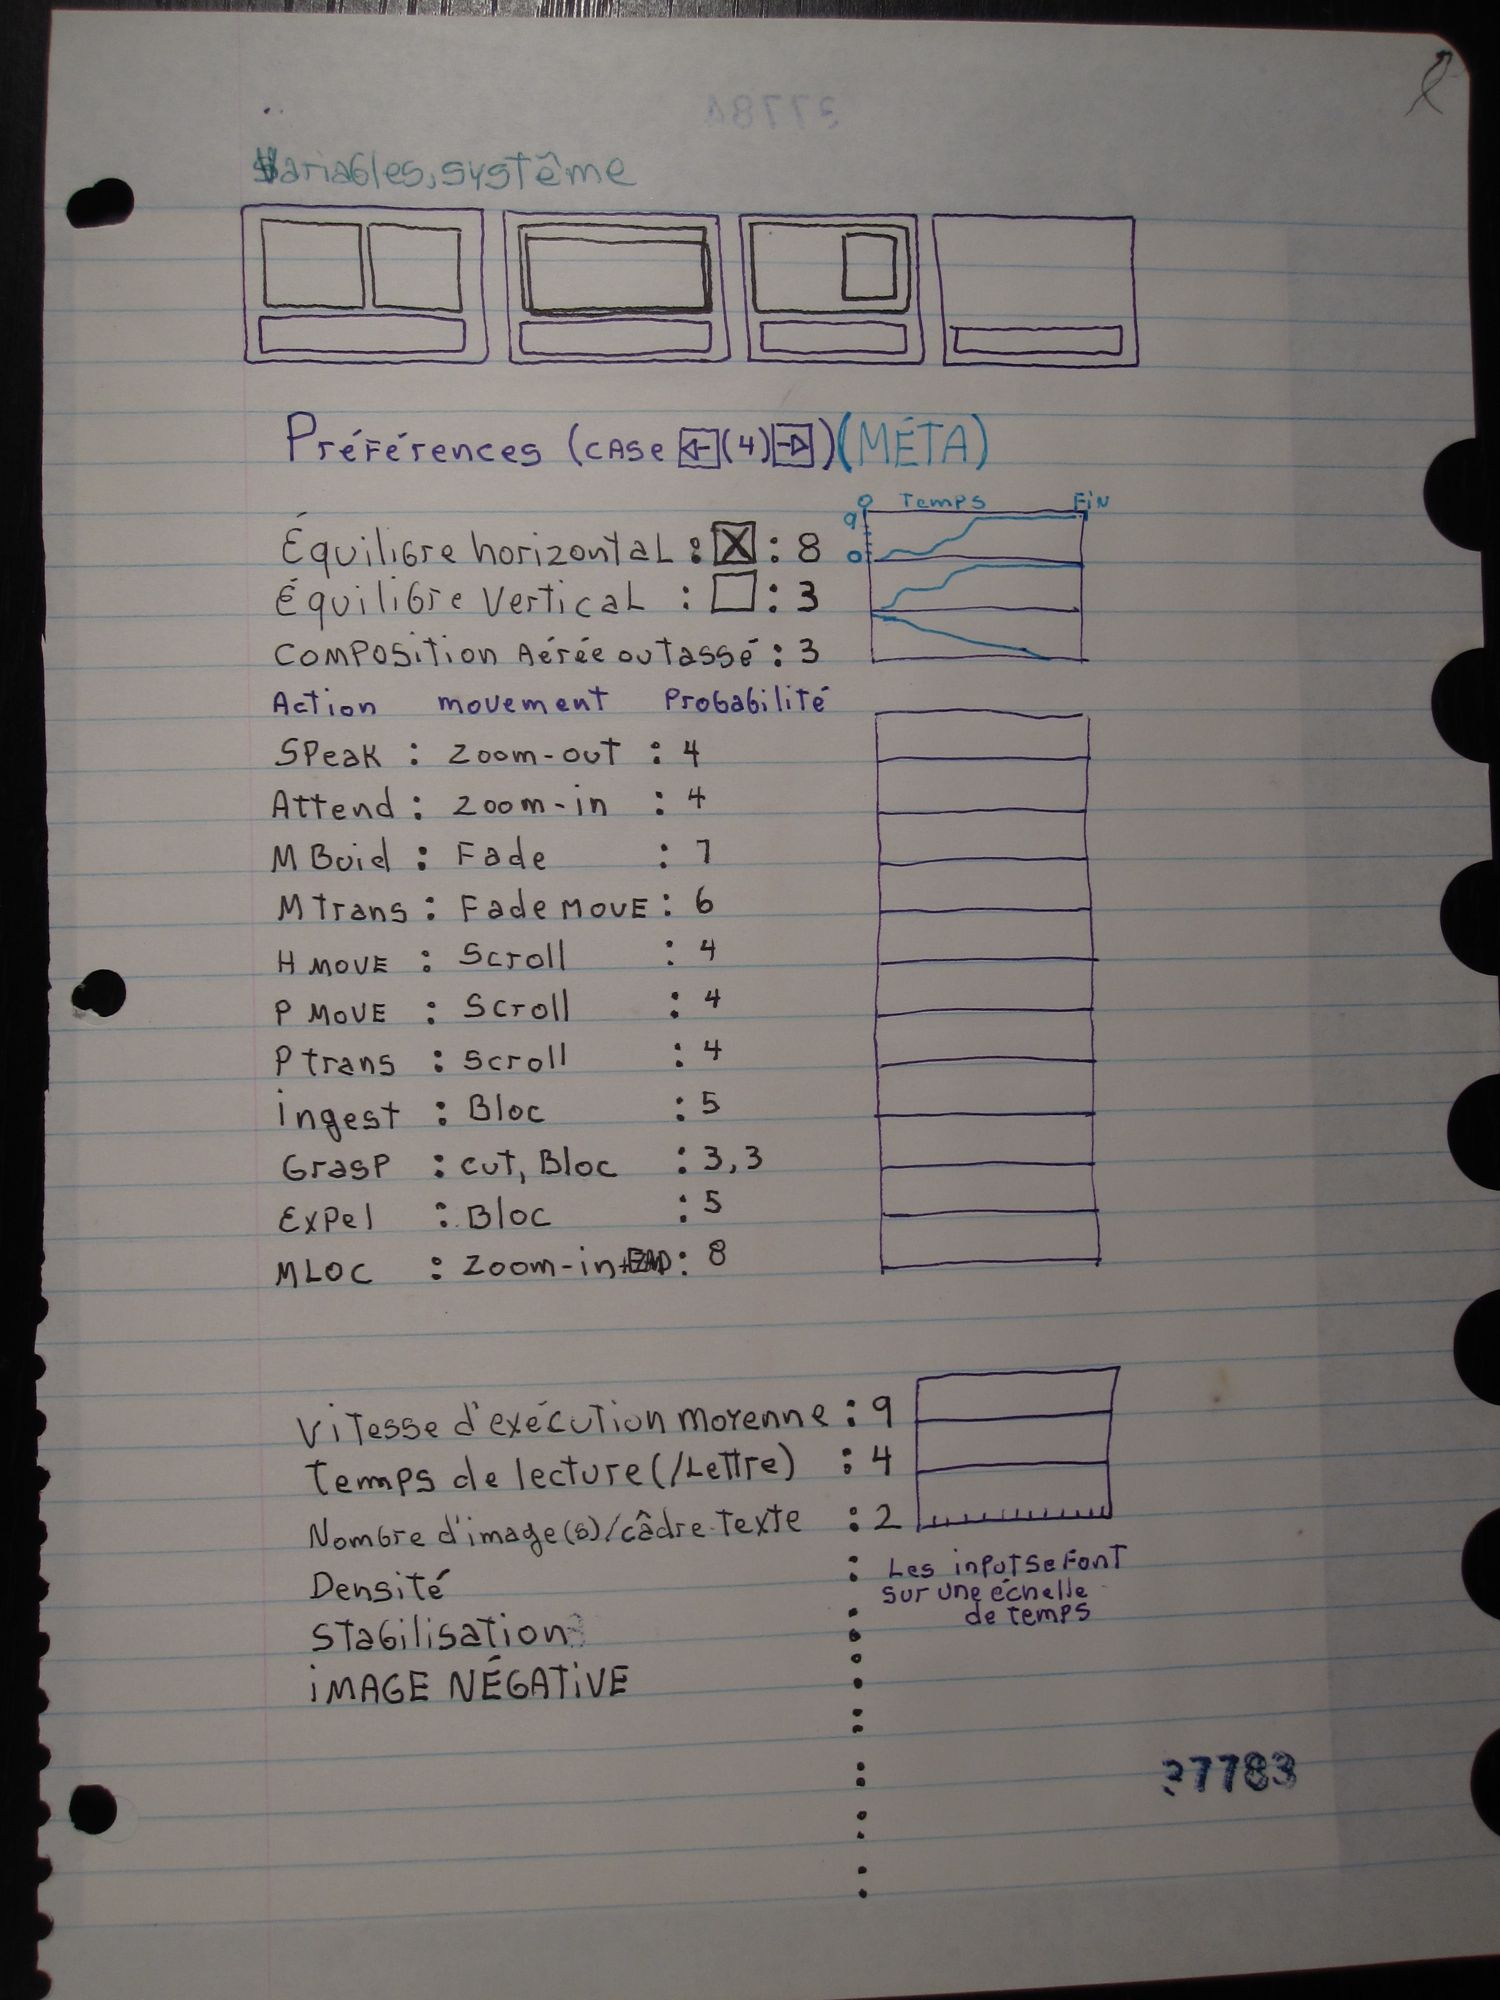 Variables, système
Préférences (case ← (4) →) (MÉTA)
0 Temps Fin
9
0
Équilibre horizontal : X : 8
Équilibre vertical : : 3
Composition Aérée ou tassé : 3
Action movement Probabilité
Speak : zoom-out : 4
Attend : zoom-in : 4
M Buid : Fade : 7
Mtrans : Fade MOVE : 6
H MOVE : Scroll : 4
P MOVE : Scroll : 4
Ptrans : Scroll : 4
ingest : Bloc : 5
Grasp : cut, Bloc : 3, 3
Expel : Bloc : 5
MLOC : zoom-in : 8
Vitesse d'exécution moyenne : 9
Temps de lecture (/Lettre) : 4
Nombre d'image(s)/câdre texte : 2
Densité :
Les inputs se font
sur une échelle
de temps
Stabilisation :
iMAGE NÉGATiVE :
37783